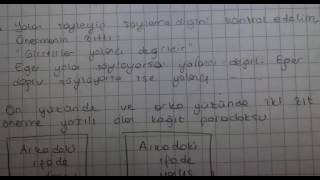 Yalan söyleyip söylemediğini kontrol edelim.
Önermenin zıttı
"Giritliler yalancı değildir"
Eğer yalan söylüyorsa yalancı değil. Eğer
doğru söylüyorsa ise yalancı
Ön yüzünde ve arka yüzünde iki zıt
önerme yazılı olan kağıt paradoksu
Arkadaki
ifade
Arkadaki
ifade
yanlış